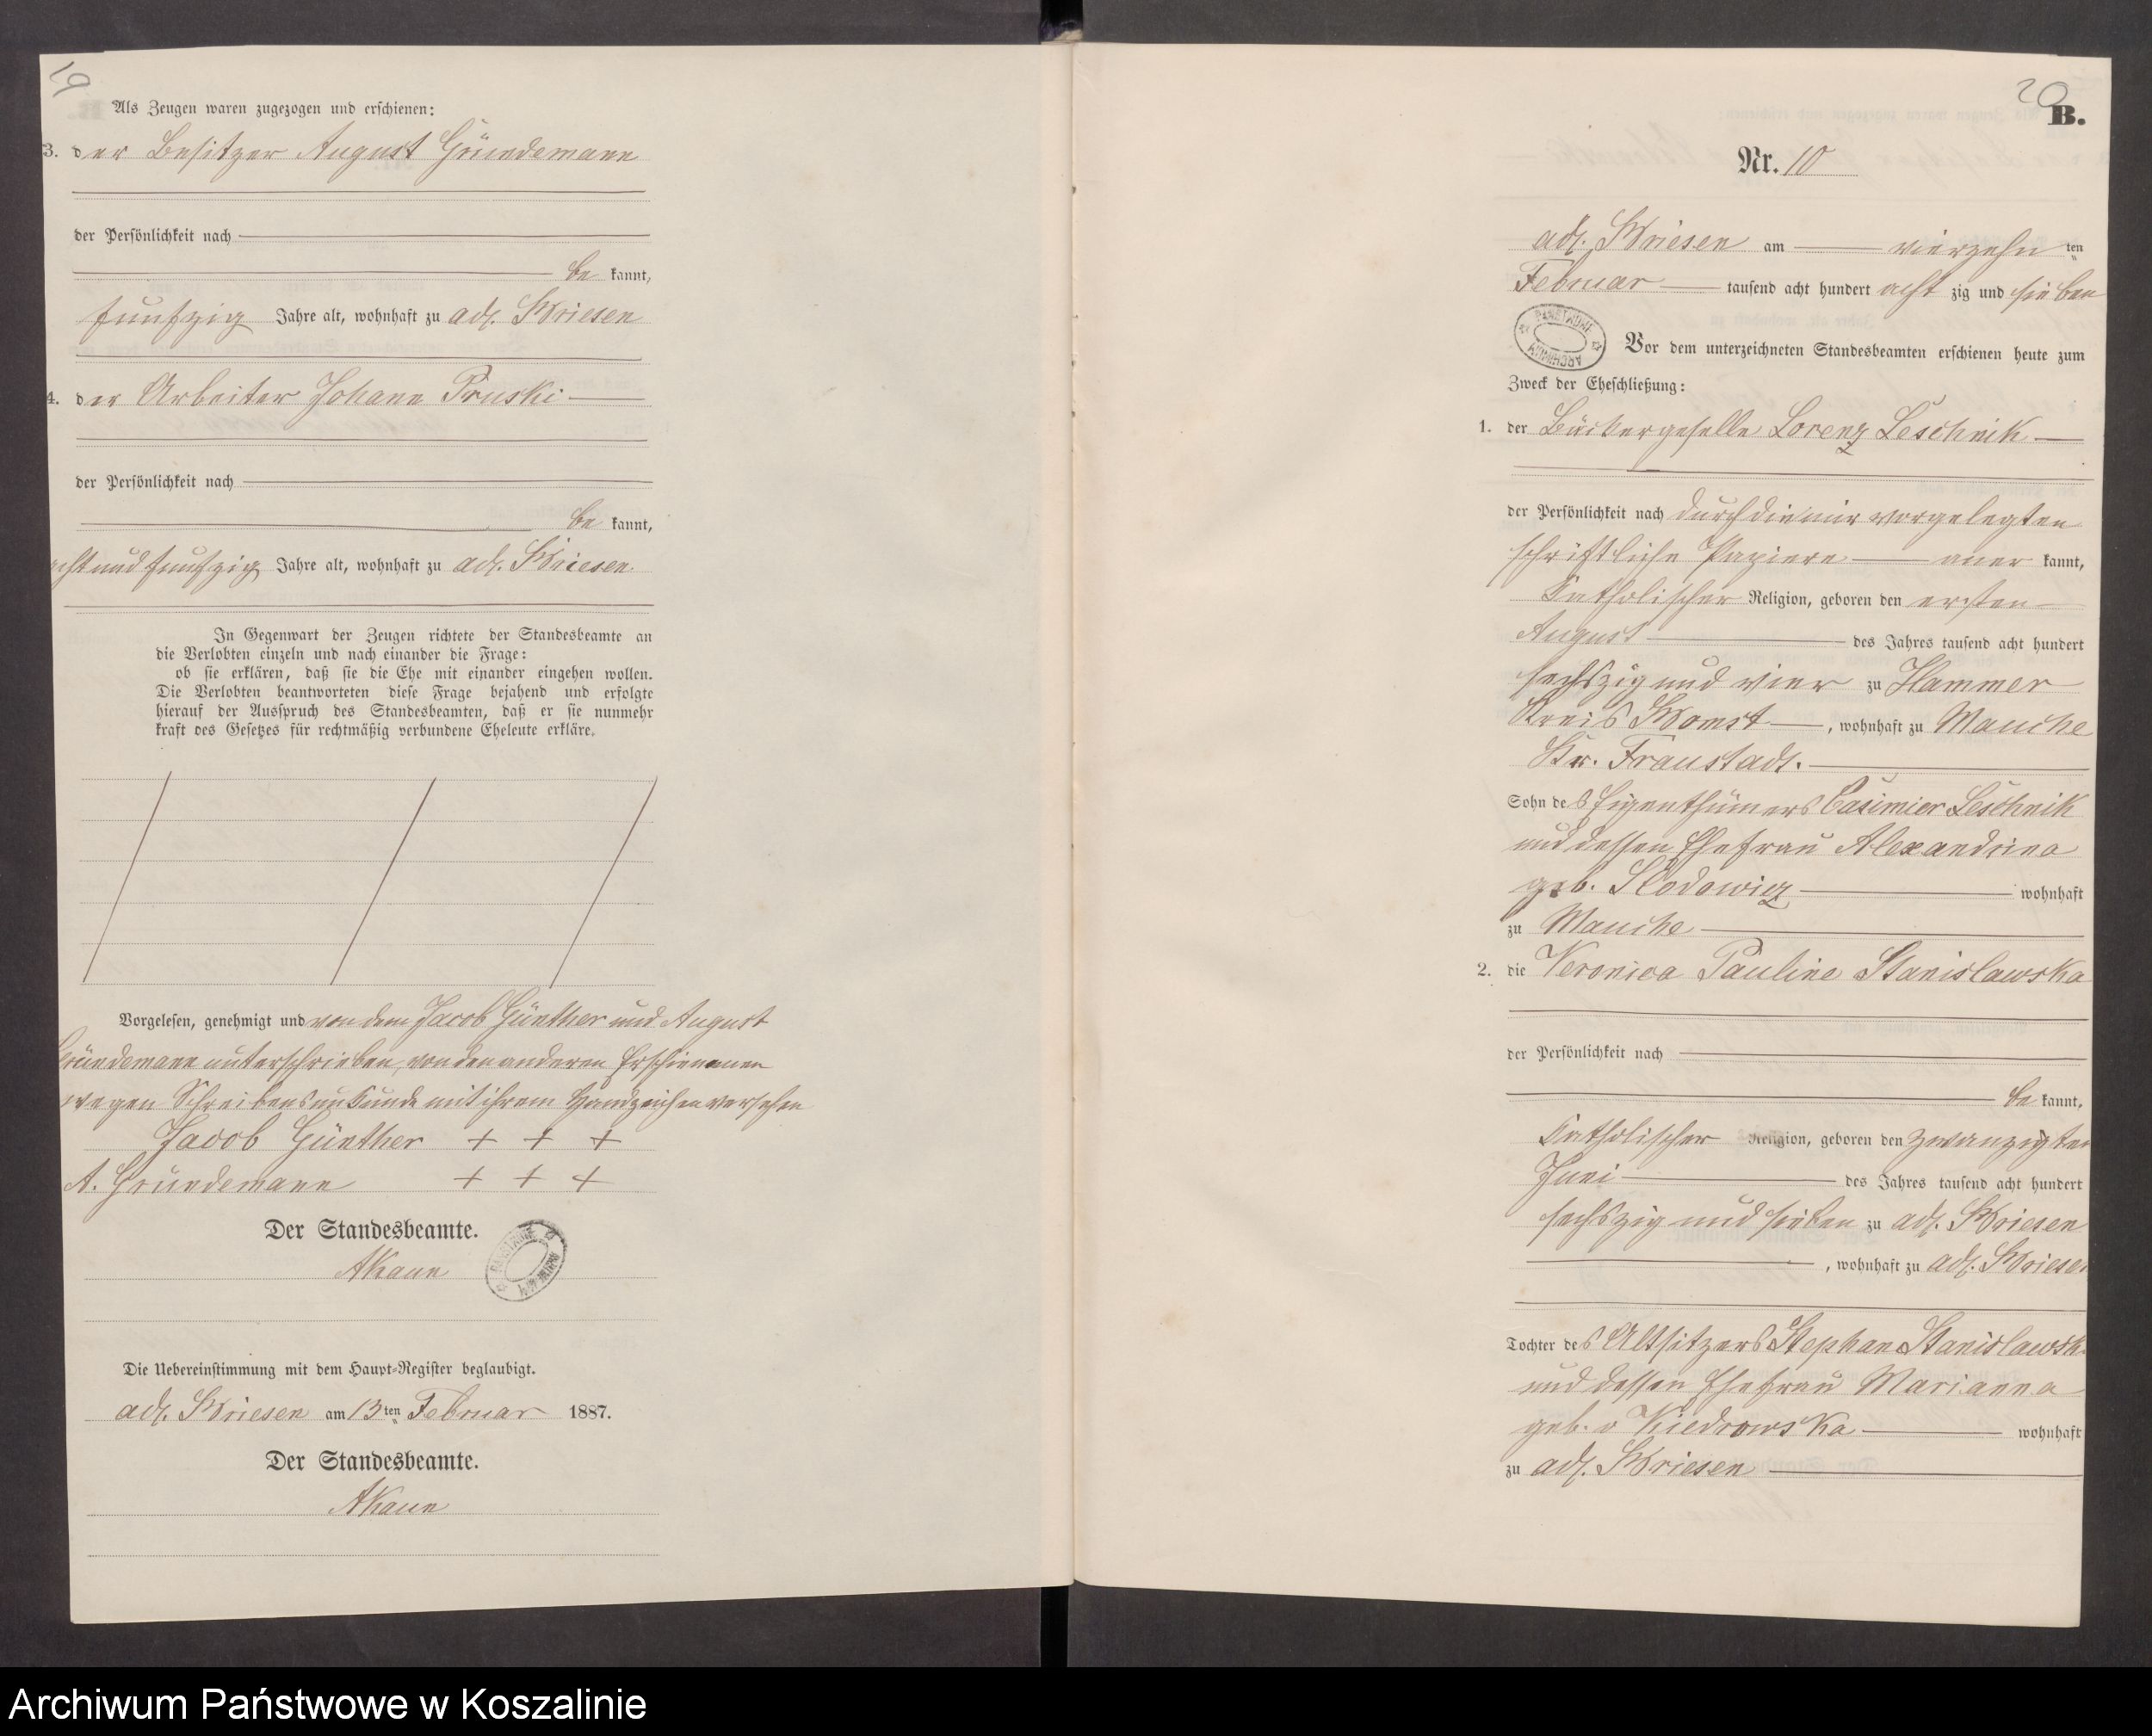 19
Als Zeugen waren zugezogen und erschienen:
3. der Besitzer August Gründemann
der Persönlichkeit nach
be kannt,
funfzig Jahre alt, wohnhaft zu adl. Briesen
4. der Arbeiter Johann Pruski
der Persönlichkeit nach
be kannt,
acht und funfzig Jahre alt, wohnhaft zu adl. Briesen.
In Gegenwart der Zeugen richtete der Standesbeamte an
die Verlobten einzeln und nach einander die Frage:
ob sie erklären, daß sie die Ehe mit einander eingehen wollen.
Die Verlobten beantworteten diese Frage bejahend und erfolgte
hierauf der Ausspruch des Standesbeamten, daß er sie nunmehr
kraft des Gesetzes für rechtmäßig verbundene Eheleute erkläre.
Vorgelesen, genehmigt und von dem Jacob Günther und August
Gründemann unterschrieben, von den anderen Erschienenen
wegen Schreibensunkunde mit ihrem Handzeichen versehen
Jacob Günther + + +
A. Gründemann + + +
Der Standesbeamte.
AKaun
Die Uebereinstimmung mit dem Haupt-Register beglaubigt.
adl. Briesen am 13ten Februar 1887.
Der Standesbeamte.
AKaun
20
B.
Nr. 10
adl. Briesen am vierzehn ten
Februar tausend acht hundert acht zig und sieben
Vor dem unterzeichneten Standesbeamten erschienen heute zum
Zweck der Eheschließung:
1. der Bäckergeselle Lorenz Leschnik
der Persönlichkeit nach durch die mir vorgelegten
schriftliche Papiere aner kannt,
Katholischer Religion, geboren den ersten
August des Jahres tausend acht hundert
sechszig und vier zu Hammer
Kreis Bomst, wohnhaft zu Mauche
Kr. Fraustadt.
Sohn des Eigenthümers Casimier Leschnik
und dessen Ehefrau Alexandrina
geb. Slodowicz wohnhaft
zu Mauche
2. die Veronica Pauline Stanislawska
der Persönlichkeit nach
be kannt,
Katholischer Religion, geboren den zwanzigten
Juni des Jahres tausend acht hundert
sechszig und sieben zu adl. Briesen
, wohnhaft zu adl. Briesen
Tochter des Altsitzers Stephan Stanislawsk
und dessen Ehefrau Marianna
geb. v Kiedrowska wohnhaft
zu adl. Briesen
Archiwum Państwowe w Koszalinie